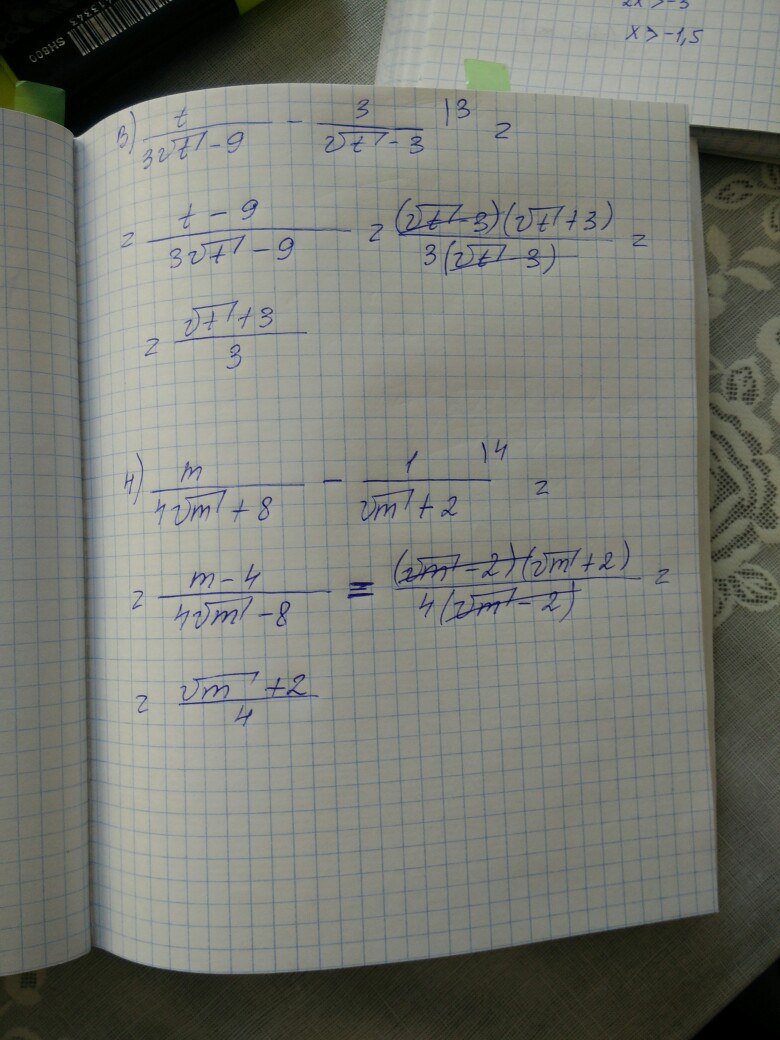 SH800
2x > -3
x > -1,5
3) t/(3√t - 9) - 3/(√t - 3) |3 =
= (t - 9)/(3√t - 9) = ((√t - 3)(√t + 3))/(3(√t - 3)) =
= (√t + 3)/3
4) m/(4√m + 8) - 1/(√m + 2) |4 =
= (m - 4)/(4√m - 8) = ((√m - 2)(√m + 2))/(4(√m - 2)) =
= (√m + 2)/4